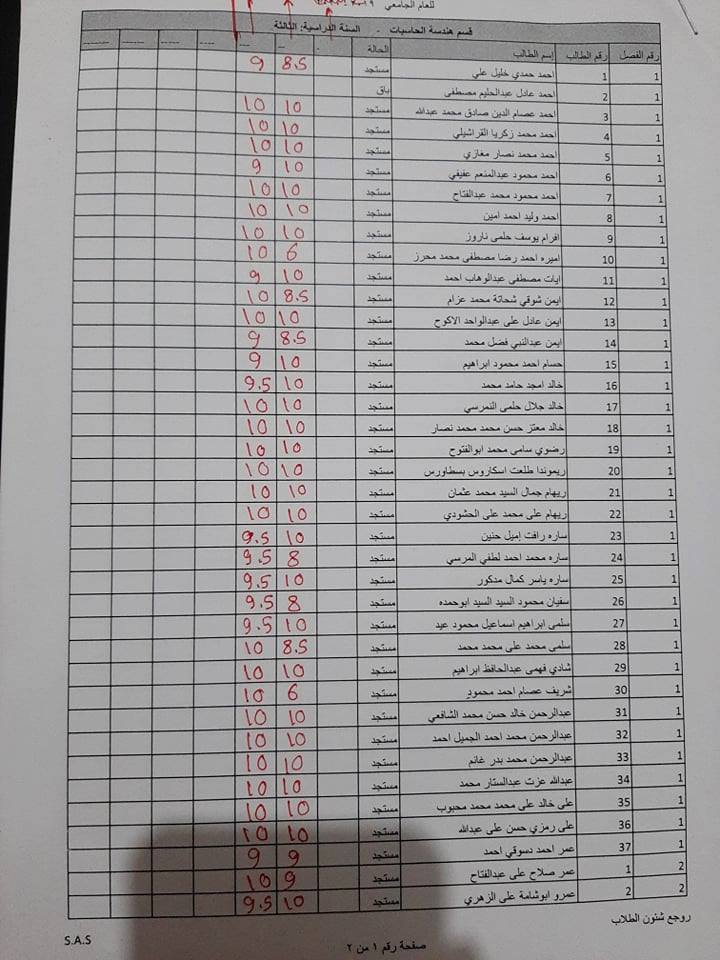 للعام الجامعي
قسم هندسة الحاسبات - السنة الدراسية: الثالثة
رقم الفصل رقم الطالب إسم الطالب الحالة
1 1 احمد حمدي خليل علي مستجد 8.5 9
1 2 احمد عادل عبدالحليم مصطفى باق
1 3 احمد عصام الدين صادق محمد عبدالله مستجد 10 10
1 4 احمد محمد زكريا القراشيلي مستجد 10 10
1 5 احمد محمد نصار مغازي مستجد 10 10
1 6 احمد محمود عبدالمنعم عفيفي مستجد 10 9
1 7 احمد محمود محمد عبدالفتاح مستجد 10 10
1 8 احمد وليد احمد امين مستجد 10 10
1 9 افرام يوسف حلمى ناروز مستجد 10 10
1 10 اميره احمد رضا مصطفى محمد محرز مستجد 6 10
1 11 ايات مصطفى عبدالوهاب احمد مستجد 10 9
1 12 ايمن شوقي شحاتة محمد عزام مستجد 8.5 10
1 13 ايمن عادل على عبدالواحد الاكوح مستجد 10 10
1 14 ايمن عبدالنبي فضل محمد مستجد 8.5 9
1 15 حسام احمد محمود ابراهيم مستجد 10 9
1 16 خالد امجد حامد محمد مستجد 10 9.5
1 17 خالد جلال حلمى النمرسي مستجد 10 10
1 18 خالد معتز حسن محمد محمد نصار مستجد 10 10
1 19 رضوي سامى محمد ابوالفتوح مستجد 10 10
1 20 ريموندا طلعت اسكاروس بسطاورس مستجد 10 10
1 21 ريهام جمال السيد محمد عثمان مستجد 10 10
1 22 ريهام على محمد على الحشودي مستجد 10 10
1 23 ساره رافت إميل حنين مستجد 10 9.5
1 24 ساره محمد احمد لطفي المرسي مستجد 8 9.5
1 25 ساره ياسر كمال مدكور مستجد 10 9.5
1 26 سفيان محمود السيد السيد ابوحمده مستجد 8 9.5
1 27 سلمى ابراهيم اسماعيل محمود عيد مستجد 10 9.5
1 28 سلمى محمد على محمد محمد مستجد 8.5 10
1 29 شادي فهمى عبدالحافظ ابراهيم مستجد 10 10
1 30 شريف عصام احمد محمود مستجد 6 10
1 31 عبدالرحمن خالد حسن محمد الشافعي مستجد 10 10
1 32 عبدالرحمن محمد احمد الجميل احمد مستجد 10 10
1 33 عبدالرحمن محمد بدر غانم مستجد 10 10
1 34 عبدالله عزت عبدالستار محمد مستجد 10 10
1 35 على خالد على محمد محمد محبوب مستجد 10 10
1 36 على رمزي حسن على عبدالله مستجد 10 10
1 37 عمر احمد دسوقي احمد مستجد 9 9
2 1 عمر صلاح على عبدالفتاح مستجد 9 10
2 2 عمرو ابوشامة على الزهري مستجد 10 9.5
روجع شئون الطلاب
صفحة رقم ١ من ٢
S.A.S